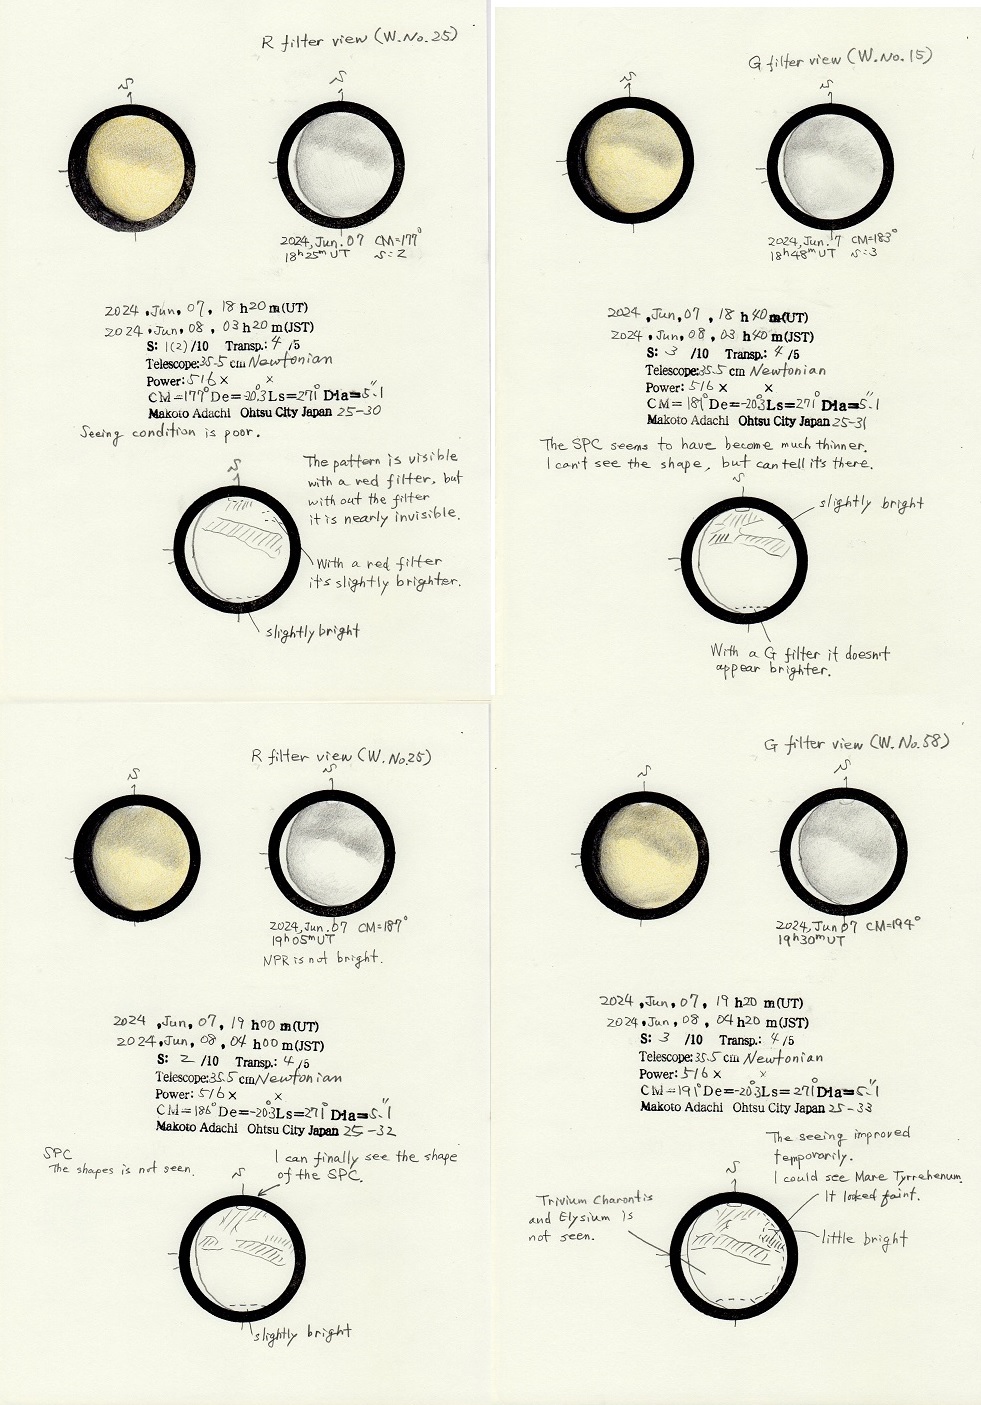 R filter view (W.No.25)
S
S
2024, Jun. 07 CM=177°
18h25mUT S:2
2024, Jun, 07, 18 h20 m(UT)
2024, Jun, 08, 03 h20 m(JST)
S: 1(2)/10 Transp.: 4/5
Telescope:35.5 cm Newtonian
Power: 516 × ×
CM=177° De=-20.°3 Ls=271° Dia=5."1
Makoto Adachi Ohtsu City Japan 25-30
Seeing condition is poor.
S
The pattern is visible
with a red filter, but
with out the filter
it is nearly invisible.
With a red filter
it's slightly brighter.
slightly bright
G filter view (W.No.15)
S
S
2024, Jun. 7 CM=183°
18h48mUT S:3
2024, Jun, 07, 18 h40 m(UT)
2024, Jun, 08, 03 h40 m(JST)
S: 3 /10 Transp.: 4/5
Telescope:35.5 cm Newtonian
Power: 516 × ×
CM=181° De=-20.°3 Ls=271° Dia=5."1
Makoto Adachi Ohtsu City Japan 25-31
The SPC seems to have become much thinner.
I can't see the shape, but can tell it's there.
S
slightly bright
With a G filter it doesn't
appear brighter.
R filter view (W.No.25)
S
S
2024, Jun. 07 CM=187°
19h05mUT
NPR is not bright.
2024, Jun, 07, 19 h00 m(UT)
2024, Jun, 08, 04 h00 m(JST)
S: 2 /10 Transp.: 4/5
Telescope:35.5 cm Newtonian
Power: 516 × ×
CM=186° De=-20.°3 Ls=271° Dia=5."1
Makoto Adachi Ohtsu City Japan 25-32
SPC
The shapes is not seen.
I can finally see the shape
of the SPC.
S
slightly bright
G filter view (W.No.58)
S
S
2024, Jun 07 CM=194°
19h30mUT
2024, Jun, 07, 19 h20 m(UT)
2024, Jun, 08, 04 h20 m(JST)
S: 3 /10 Transp.: 4/5
Telescope:35.5 cm Newtonian
Power: 516 × ×
CM=191° De=-20.°3 Ls=271° Dia=5."1
Makoto Adachi Ohtsu City Japan 25-33
The seeing improved
temporarily.
I could see Mare Tyrrehenum.
It looked faint.
S
Trivium Charontis
and Elysium is
not seen.
little bright